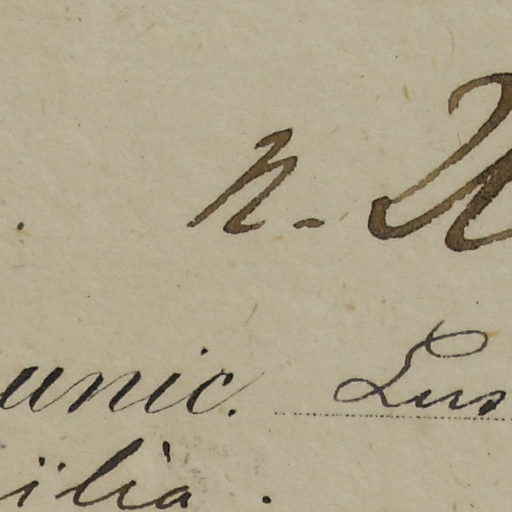 n-
unic. Lus
ilia.